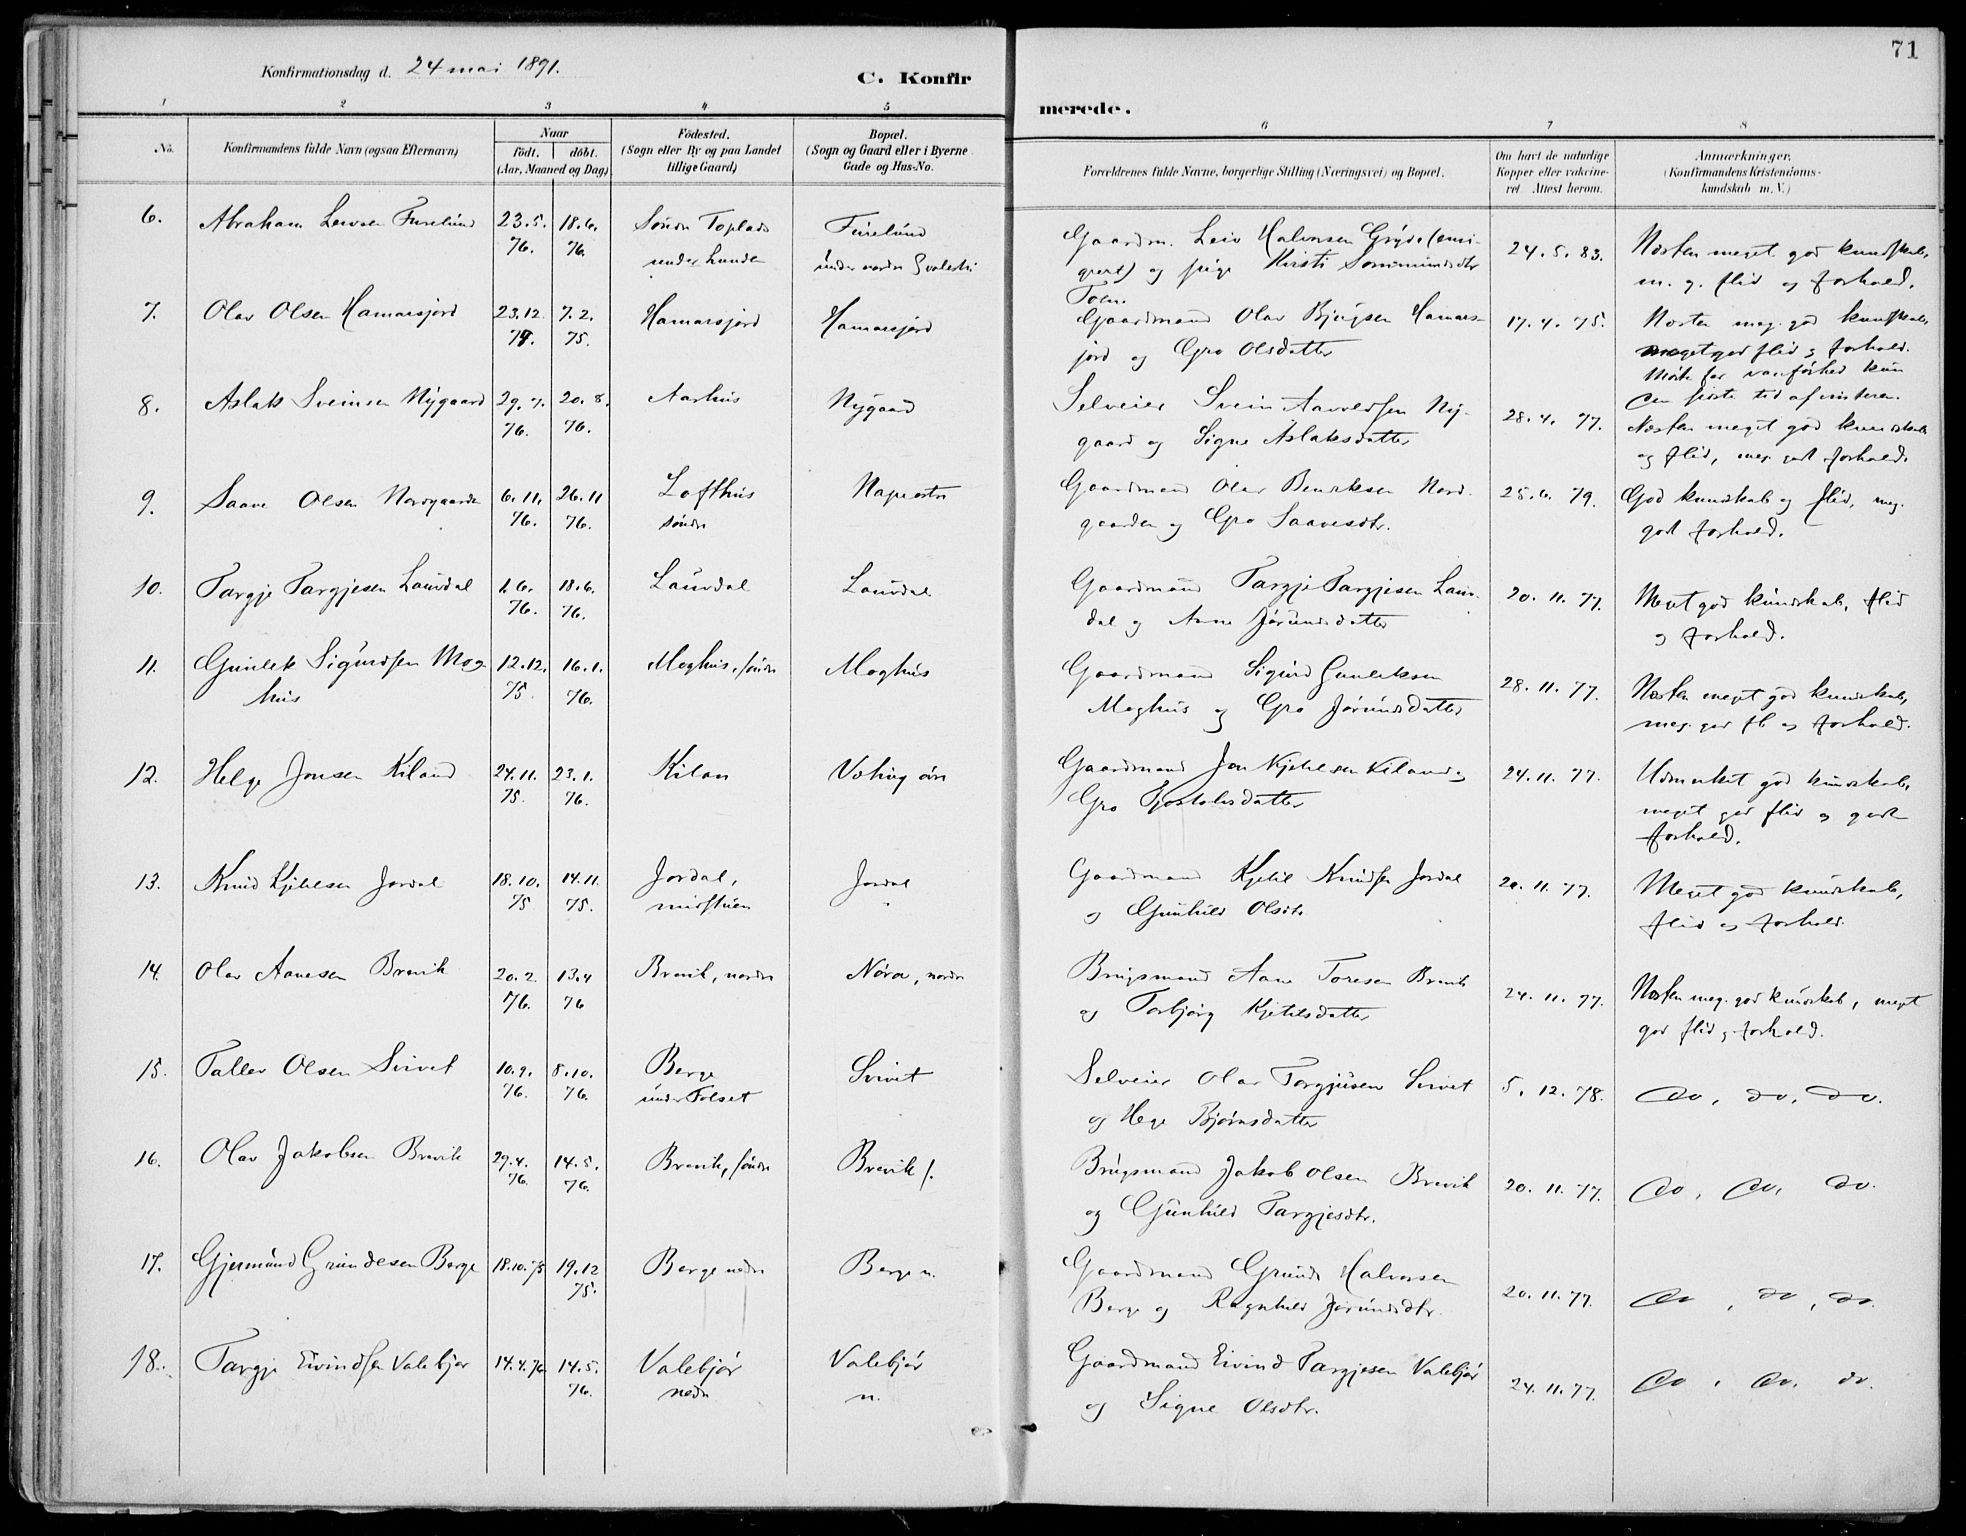 71
Konfirmationsdag d. 24 mai 1891.
C. Konfirmerede.
1 2 3 4 5 6 7 8
No.
Konfirmandens fulde Navn (ogsaa Efternavn)
Naar
födt. döbt.
(Aar, Maaned og Dag)
Födested.
(Sogn eller By og paa Landet
tillige Gaard)
Bopæl.
(Sogn og Gaard eller i Byerne
Gade og Hus-No.
Forældrenes fulde Navne, borgerlige Stilling (Næringsvei) og Bopæl.
Om havt de naturlige
Kopper eller vakcine-
ret. Attest herom.
Anmærkninger.
(Konfirmandens Kristendoms-
kundskab m. V.)
6. Abraham Leivsen Furelund 23.5. 18.6. Søndre Furelund
76. 76. under Lunde under nordre
Gaardm. Leiv Halvorsen Gryde (emi- 24.5.83. Næsten meget god kundskab,
grert) og pige Kirsti m. g. flid og forhold.
7. Olav Olsen Hamarsjord 23.12. 7.2. Hamarsjord Hamarsjord
74. 75.
Gaardmand Olav Hamars- 17.4.75. Næsten meg. god kundskab,
jord og Gro Olsdatter meget god flid og forhold.
8. Aslak Sveinsen Nygaard 29.7. 20.8. Aarhus Nygaard
76. 76.
Selveier Svein Ny- 28.4.77. Næsten meget god kundskab
gaard og Signe Aslaksdatter og flid, meg. godt forhold.
9. Saave Olsen Nordgaarden 6.11. 26.11 Lofthus
76. 76. søndre
Gaardmand Olav Nord- 25.6.79. God kundskab og flid, meg.
gaarden og Gro Saavesdtr. godt forhold.
10. Targje Targjesen Laurdal 1.6. 18.6. Laurdal Laurdal
76. 76.
Gaardmand Targje Targjesen Laur- 20.11.77. Meget god kundskab, flid
dal og Anne Jørundsdatter og forhold.
11. Gunlek Sigurdsen Mog- 12.12. 16.1. Moghus, søndre Moghus
hus 75. 76.
Gaardmand Sigurd Gunleksen 28.11.77. Næsten meget god kundskab,
Moghus og Gro Jørundsdatter meg. god fl. og forhold.
12. Helge Jonsen Kiland 24.11. 23.1. Kilan
75. 76.
Gaardmand Jon Kjetilsen Kiland og 24.11.77. Udmerket god kundskab,
Gro meget god flid og godt
forhold.
13. Knud Kjetilsen Jordal 18.10. 14.11. Jordal, Jordal
75 75. midstuen
Gaardmand Kjetil Knudsen Jordal 20.11.77. Meget god kundskab,
og Gunhild Olsdtr. flid og forhold.
14. Olav Aanesen Brevik 20.2. 13.4 Brevik, nordre nordre
76. 76
Brugsmand Aane Toresen Brevik 24.11.77. Næsten meg. god kundskab, meget
og Torbjørg Kjetilsdatter god flid og forhold.
15. Tallev Olsen Sirivet 10.9. 8.10. Berge
76. 76. under Folset
Selveier Olav Torgjusen 5.12.78. do, do, do.
og Hege Bjørnsdatter
16. Olav Jakobsen Brevik 29.4. 14.5. Brevik, søndre Brevik s.
76. 76.
Brugsmand Jakob Olsen Brevik 20.11.77. do, do, do.
og Gunhild Targjesdtr.
17. Gjermund Grundesen Berge 18.10.75 19.12 Berge nedre Berge n.
75.
Gaardmand Grunde Halvorsen 20.11.77. do, do, do.
Berge og Ragnhild Jørundsdtr.
18. Targje Eivindsen Valebjør 14.4.76 14.5. Valebjør Valebjør
76. nedre n.
Gaardmand Eivind Targjesen Valebjør 24.11.77. do, do, do.
og Signe Olsdtr.